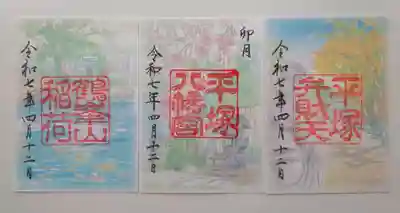 令和七年四月十二日
鶴峯山
稲荷
卯月
平塚
八幡宮
令和七年四月十二日
平塚
弁財天
令和七年四月十二日